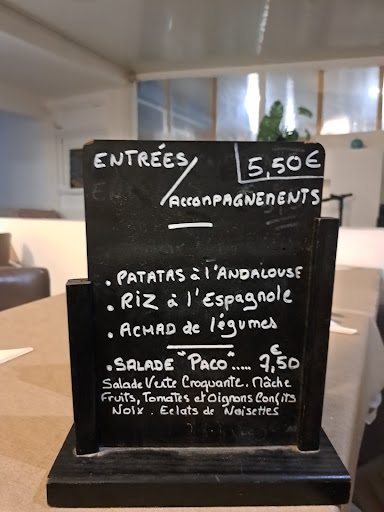 ENTRÉES / 5,50€
ACCOMPAGNEMENTS
. PATATAS à l'ANDALOUSE
. RIZ à l'Espagnole
. ACHAD de légumes
. SALADE "PACO"..... 7,50€
Salade Verte Croquante. Mâche
Fruits, Tomates et Oignons Confits
Noix. Eclats de Noisettes